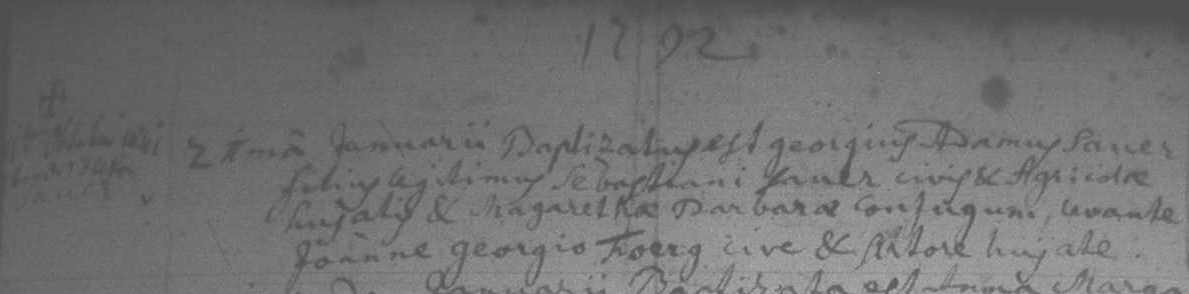 1702
2 Januarii Baptizatus est georgius Adamus Sauer
filius legitimus Sebastiani Sauer civis & Agricolæ
hujatis & Magarethæ Barbaræ conjugum, levante
Joanne georgio cive & Sartore hujate.
Januarii Baptizata est Anna Marga